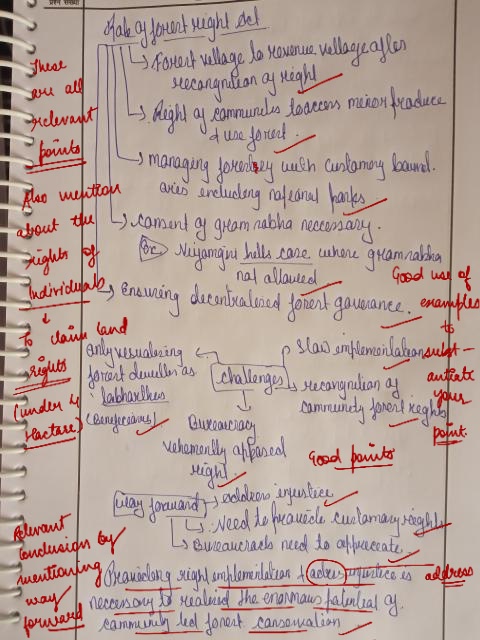 प्रश्न संख्या
Role of forest right Act
Forest village to revenue village after
recongnition of right
Right of communities to access minor produce
& use forest.
managing forestry with customary bound.
aries including national parks
consent of gram sabha neccessary.
Ex Niyamgiri hills case where gram sabha
not allowed
Ensuring decentralised forest governance.
These
are all
relevant
points
Also mention
about the
rights of
Individuals
to claim land
rights
(under 4
Hectare)
Good use of
examples
to
subst-
antiate
your
point.
challenges
only visualising
forest dweller as
labharthees
(beneficiaries)
Slow implementation
recongnition of
community forest rights
Bureaucracy
vehemently apposed
right
Good points
Way forward
address injustice
Need to provide customary rights
Bureaucrats need to appreciate.
Relevant
conclusion by
mentioning
way
forward
Providing right implementation & adress injustice is
address
neccessary to realised the enormous potential of
community led forest conservation